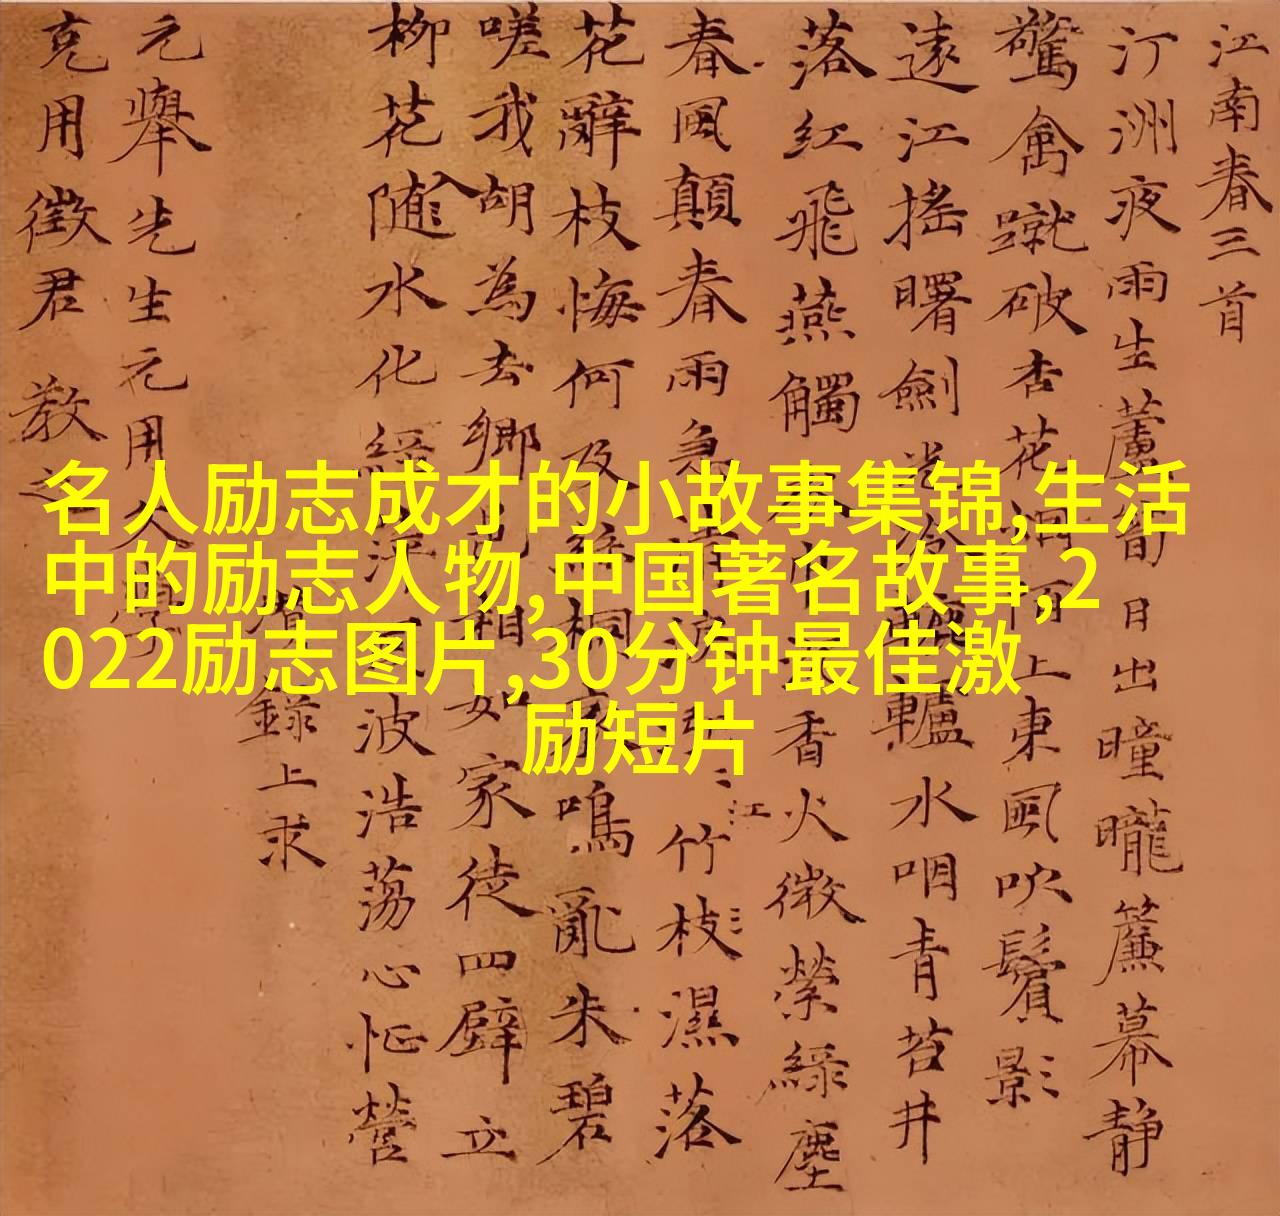 江南春三首
汀洲夜雨生蘆筍日出曈曨簾幕静
驚禽蹴破杏花上東風吹鬢影
遠江搖曙劍光冷轤水咽青苔井
落紅飛燕觸香火微縈緑塵
春風顛春雨急江竹枝濕落
花辭枝悔何及絲桐哀鳴亂朱碧
嗟我胡為去鄉邑相如家徒四壁立
柳花随入水化緑波浩蕩心怔營
錄上求
元舉先生元用
克用徵君教之
名人励志成才的小故事集锦,生活
中的励志人物,中国著名故事,2
022励志图片,30分钟最佳激
励短片